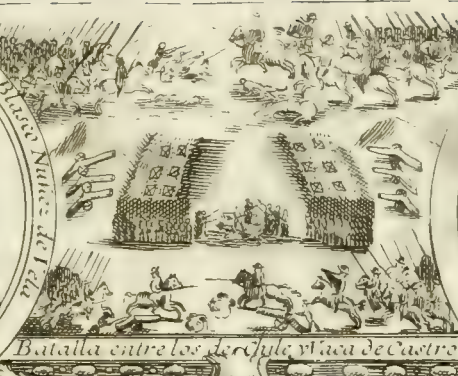 Blasco Nuñez de Vela
Batalla entre los de Chile y Vaca de Castro